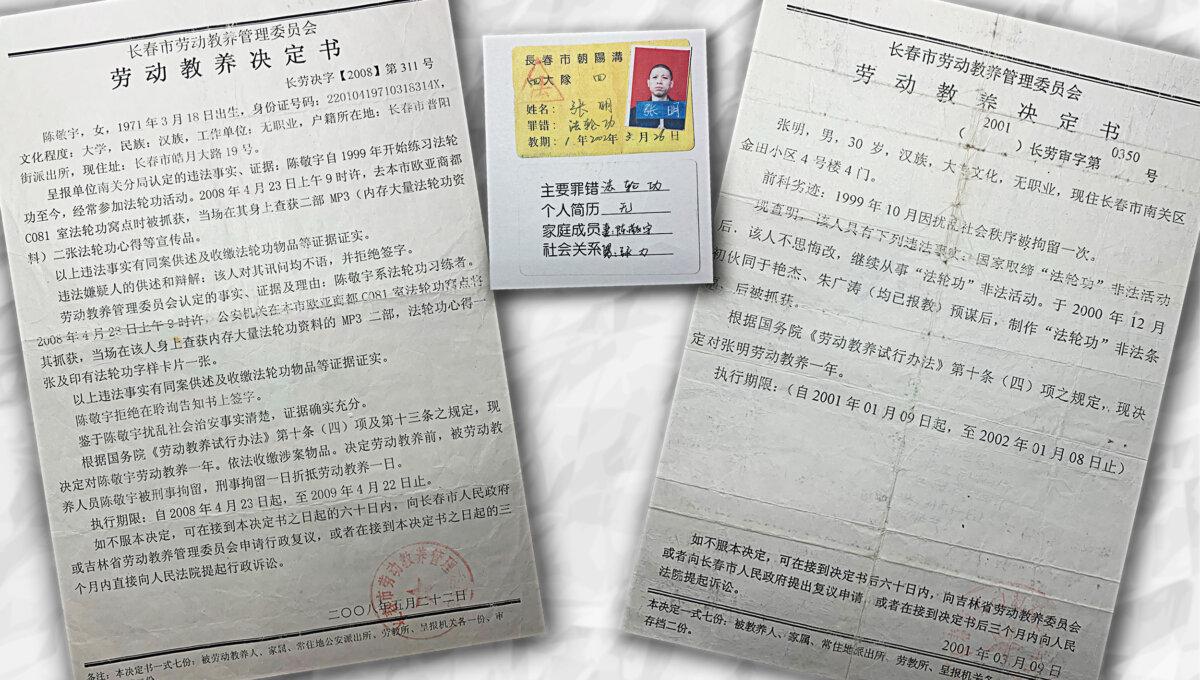 长春市劳动教养管理委员会
劳动教养决定书
长劳决字【2008】第311号
陈敬宇，女，1971年3月18日出生，身份证号码：22010419710318314X，
文化程度：大学，民族：汉族，工作单位：无职业，户籍所在地：长春市普阳
街派出所，现住址：长春市皓月大路19号。
呈报单位南关分局认定的违法事实、证据：陈敬宇自1999年开始练习法轮
功至今，经常参加法轮功活动。2008年4月23日上午9时许，去本市欧亚商都
C081室法轮功窝点时被抓获，当场在其身上查获二部MP3（内存大量法轮功资
料）二张法轮功心得等宣传品。
以上违法事实有同案供述及收缴法轮功物品等证据证实。
违法嫌疑人的供述和辩解：该人对其讯问均不语，并拒绝签字。
劳动教养管理委员会认定的事实、证据及理由：陈敬宇系法轮功习练者。
2008年4月23日上午9时许，公安机关在本市欧亚商都C081室法轮功窝点将
其抓获，当场在该人身上查获内存大量法轮功资料的MP3二部，法轮功心得一
张及印有法轮功字样卡片一张。
以上违法事实有同案供述及收缴法轮功物品等证据证实。
陈敬宇拒绝在聆询告知书上签字。
鉴于陈敬宇扰乱社会治安事实清楚，证据确实充分。
根据国务院《劳动教养试行办法》第十条（四）项及第十三条之规定，现
决定对陈敬宇劳动教养一年。依法收缴涉案物品。决定劳动教养前，被劳动教
养人员陈敬宇被刑事拘留，刑事拘留一日折抵劳动教养一日。
执行期限：自2008年4月23日起，至2009年4月22日止。
如不服本决定，可在接到本决定书之日起的六十日内，向长春市人民政府
或吉林省劳动教养管理委员会申请行政复议，或者在接到本决定书之日起的三
个月内直接向人民法院提起行政诉讼。
二〇〇八年五月二十二日
备注：本决定书一式七份：被劳动教养人、家属、常住地公安派出所、劳教所、呈报机关各一份、审
長春市朝陽溝
四大隊 四
姓名：张明
罪错：法轮功
教期：1年2002年3月26日
张明
主要罪错 法轮功
个人简历 无
家庭成员 妻陈敬宇
社会关系
长春市劳动教养管理委员会
劳动教养决定书
（2001）长劳审字第0350号
张明，男，30岁，汉族，大专文化，无职业，现住长春市南关区
金田小区4号楼4门。
前科劣迹：1999年10月因扰乱社会秩序被拘留一次。
现查明，该人具有下列违法事实：国家取缔“法轮功”非法活动
后，该人不思悔改，继续从事“法轮功”非法活动。于2000年12月
初伙同于艳杰、朱广涛（均已报教）预谋后，制作“法轮功”非法条
后被抓获。
根据国务院《劳动教养试行办法》第十条（四）项之规定，现决
定对张明劳动教养一年。
执行期限：（自2001年01月09日起，至2002年01月08日止）
如不服本决定，可在接到决定书后六十日内，向吉林省劳动教养委员会
或者向长春市人民政府提出复议申请，或者在接到决定书后三个月内向人民
法院提起诉讼。
2001年03月09日
本决定一式七份：被教养人、家属、常住地派出所、劳教所、呈报机关各
存档二份。